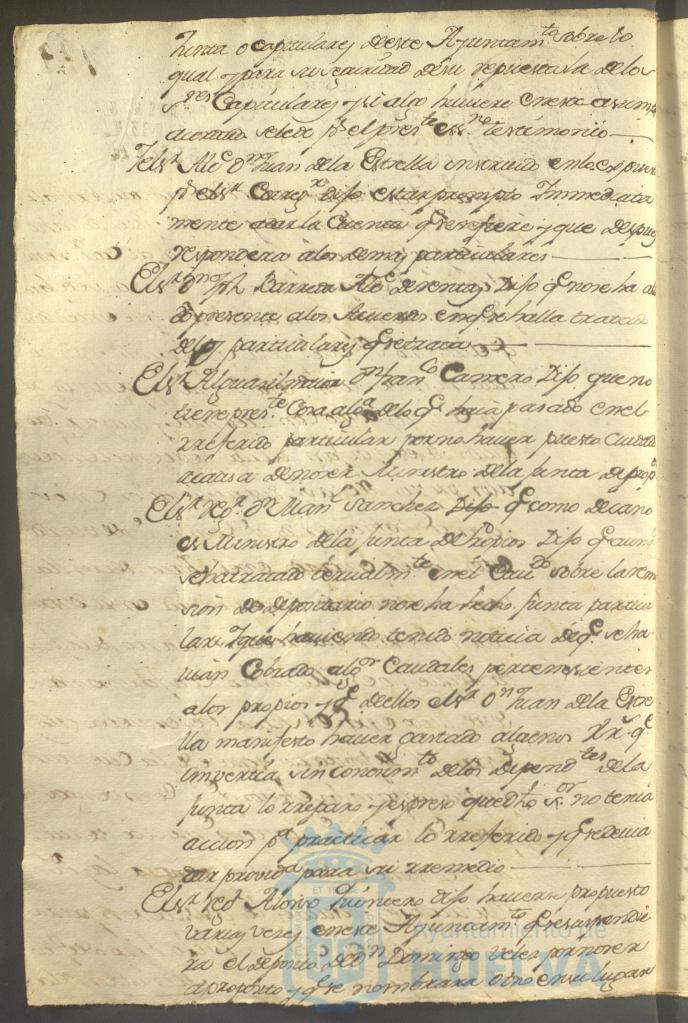 Junta o capitulares deeste Ayuntam.to sobre lo
qual y para su seguridad desu repuesta la delos
s.res Capitulares y si algo huviere eneste asump
acordado sele de p.r el pres.te ess.no testimonio
Y el s.r Alc.e D.n Juan dela Estrella instruido en lo expues
p.r el s.r Correg.r Dijo estar prompto Immediata
mente adar la Cuenta q.e se refiere y que despues
respondera alos demas particulares
El s.r D.n Jph Barrera Alc.e Dijo q.e no se ha
presente alos Acuerdos en q.e se halla tratado
delos particulares q.e se trata
El s.r Alguacil maior D.n Fran.co Carrero Dijo que no
tiene pres.te Cosa alg.a delo q.e haia pasado en el
rreferido particular por no haver puesto Cuida
acausa de no ser Ministro dela Junta de prop.s
El s.r reg.r D.n Man.l Sanchez Dijo q.e como decano
es Ministro dela Junta de Propios Dijo q.e aun
se ha tratado en el Cavi.do sobre la
sion de depositario no se ha hecho Junta particu
lar Y que haviendo tenido noticia de q.e se ha
vian Cobrado algo.s Caudales pertenesientes
alos propios y q.e de ellos el s.r D.n Juan dela Estre
lla manifesto haver gastado algunos R.s q.e
imvertia sin consentim.to delos Depend.tes dela
Junta lo rreparo y espreso que dho s.or no tenia
accion p.a practicar lo rreferido y q.e se devia
dar provid.a para su rremedio
El s.r reg.r Alonso Quintero dijo haverse propuesto
varias vezes en este Ayuntam.to q.e se suspendie
ra el deposito de D.n Domingo Velez por no ser
aproposito y q.e se nombrara otro en su lugar
Ayuntamiento de
HUELVA